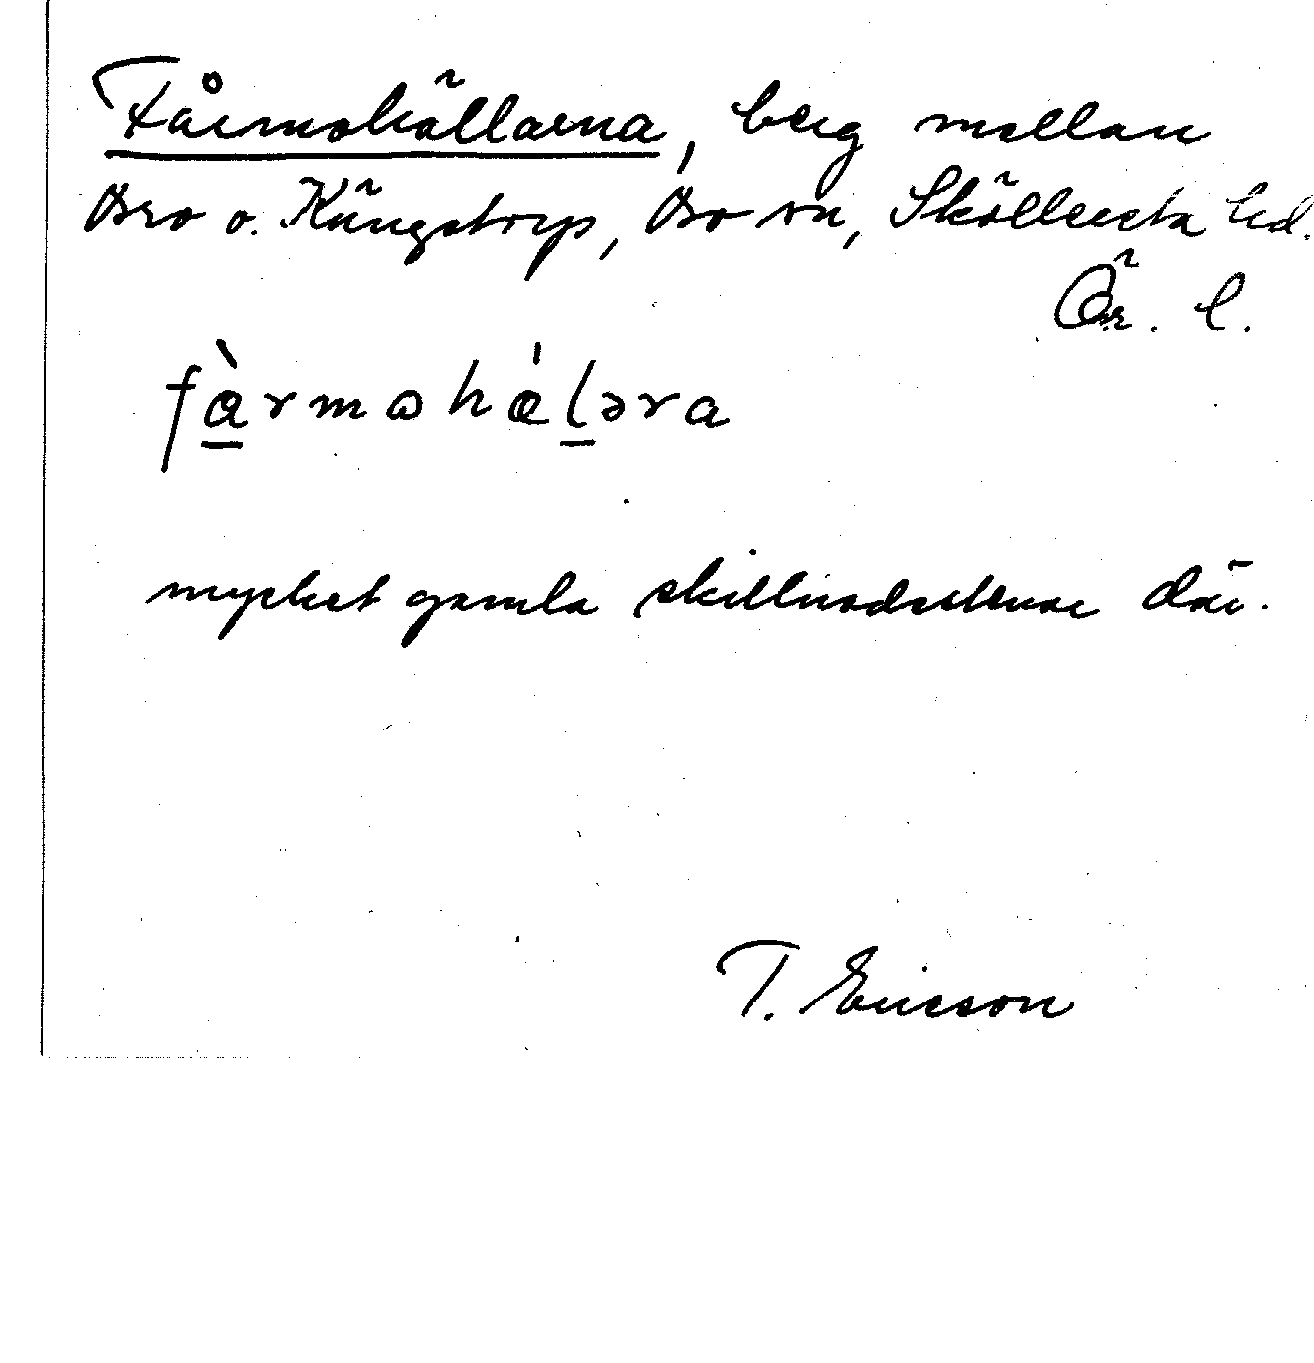 Fårmohällarna, berg mellan
Bro o. Kängstorp, Bro sn, Skållersta hd.
Ör. l.
fàrmωhálәra
mycket gamla skillnadsstenar där.
T. Ericson